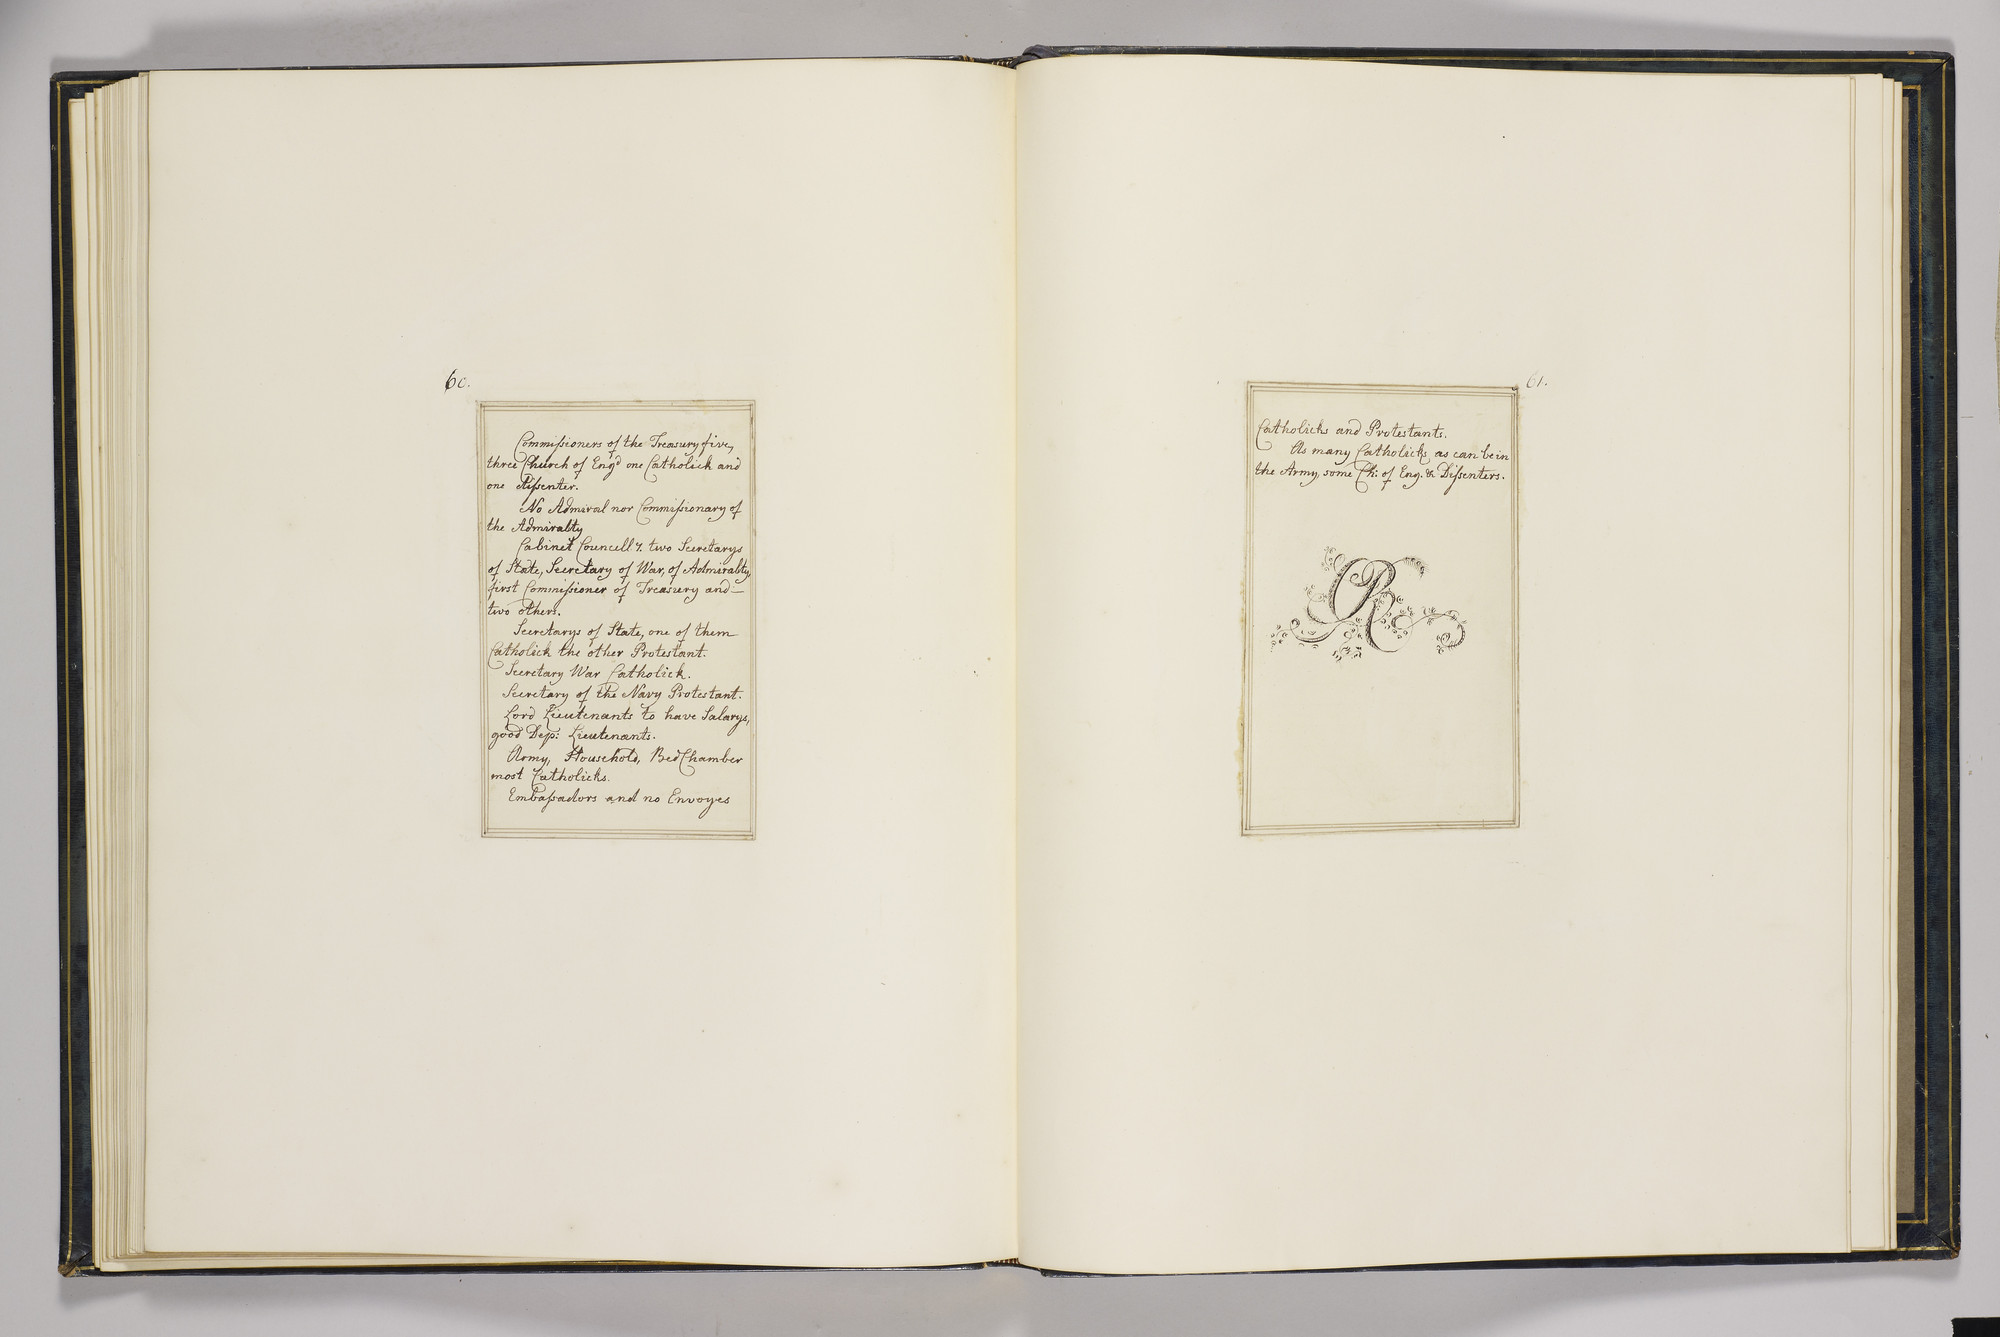 60.
Commissioners of the Treasury five,
three Church of Engd one Catholick and
one Dissenter.
No Admiral nor Commissionary of
the Admiralty
Cabinet Councell 7. two Secretarys
of State, Secretary of War, of Admiralty,
first Commissioner of Treasury and
two others.
Secretarys of State, one of them
Catholick the other Protestant.
Secretary War Catholick.
Secretary of the Navy Protestant.
Lord Lieutenants to have Salarys,
good Dep: Lieutenants.
Army, Household, BedChamber
most Catholicks.
Embassadors and no Envoyes
61.
Catholicks and Protestants.
As many Catholicks as can be in
the Army, some Ch: of Eng. & Dissenters.